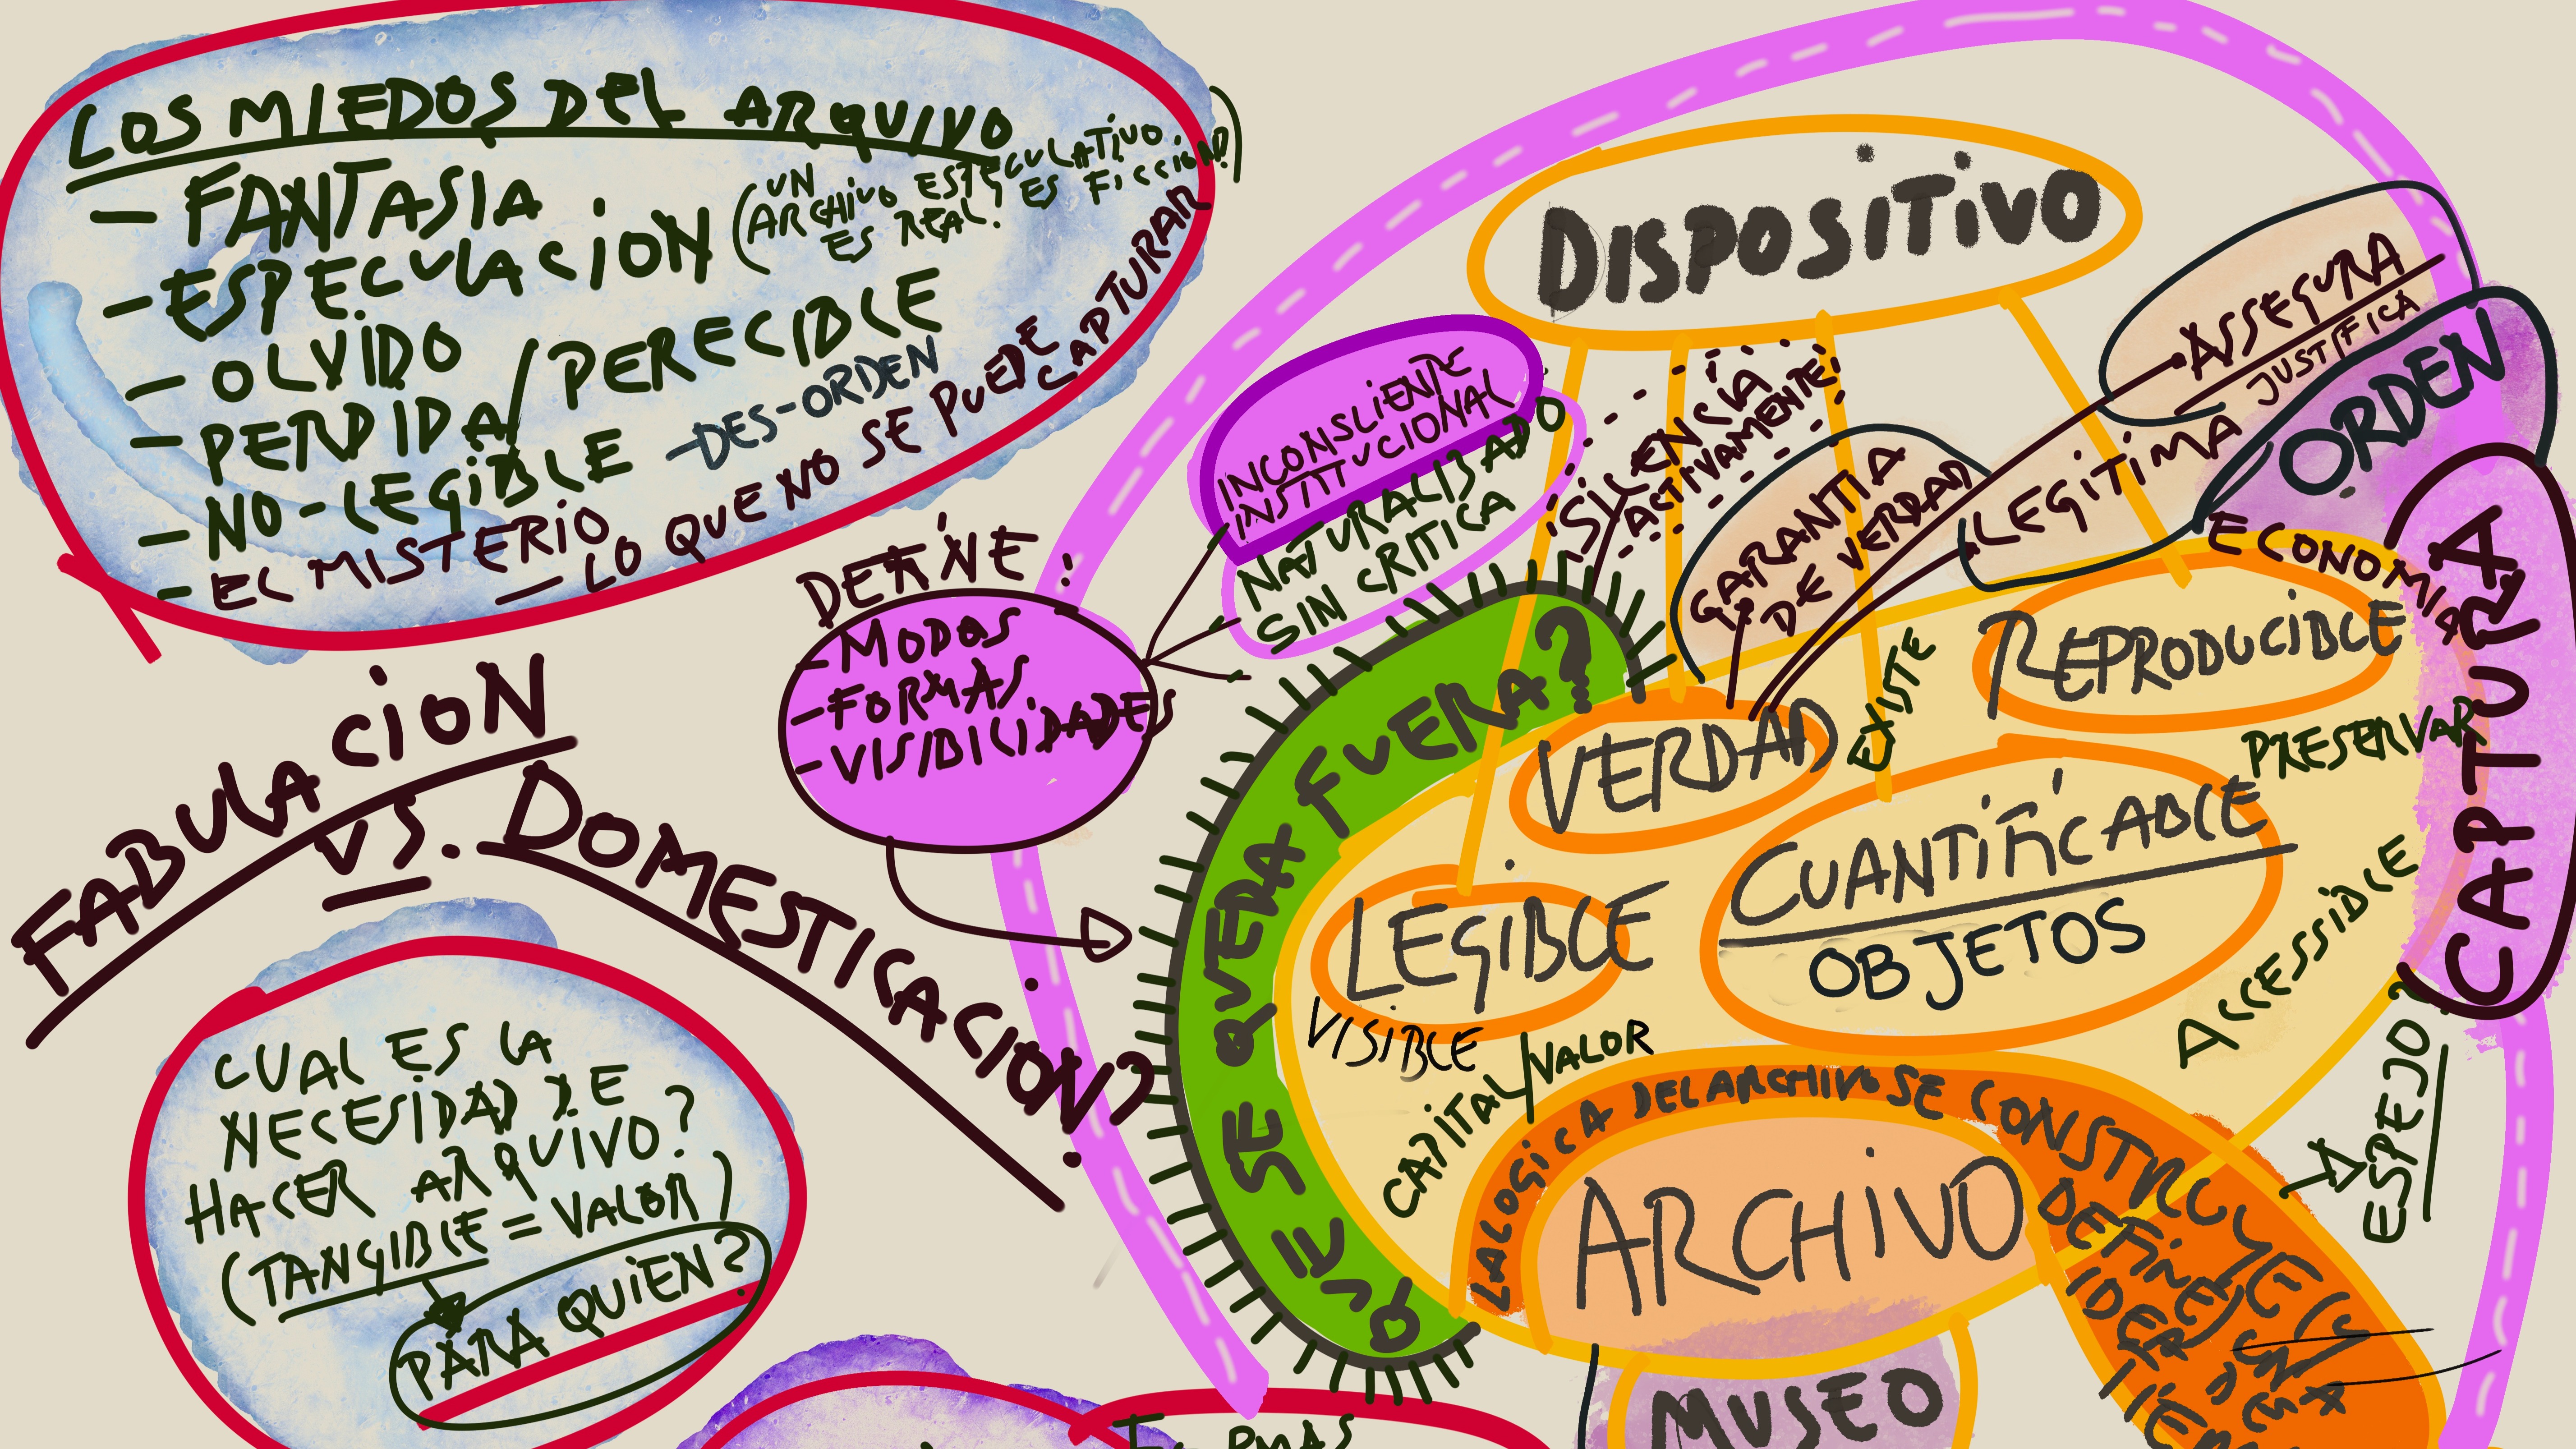 LOS MIEDOS DEL ARQUIVO
- FANTASIA
- ESPECULACION (UN ARCHIVO ESPECULATIVO ES REAL? ES FICCION?)
- OLVIDO
- PERDIDA / PERECIBLE
- NO-LEGIBLE - DES-ORDEN
- EL MISTERIO
- LO QUE NO SE PUEDE CAPTURAR
FABULACION
VS. DOMESTICACION?
CUAL ES LA
NECESIDAD DE
HACER ARQUIVO?
(TANGIBLE = VALOR)
PARA QUIEN?
DEFINE:
- MODOS
- FORMAS
- VISIBILIDADES
INCONSCIENTE
INSTITUCIONAL
NATURALISADO
SIN CRITICA
DISPOSITIVO
SILENCIA
ACTIVAMENTE!
GARANTIA
DE VERDAD
ASSEGURA
JUSTIFICA
LEGITIMA
ORDEN
ECONOMIA
CAPTURA
QUE SE QUEDA FUERA?
VERDAD
EXISTE
REPRODUCIBLE
PRESERVAR
CUANTIFICABLE
OBJETOS
LEGIBLE
VISIBLE
CAPITAL/VALOR
ACCESSIBLE
ESPEJO?
LA LOGICA DEL ARCHIVO SE CONSTRUYE
DEFINE
ARCHIVO
MUSEO
FORMAS